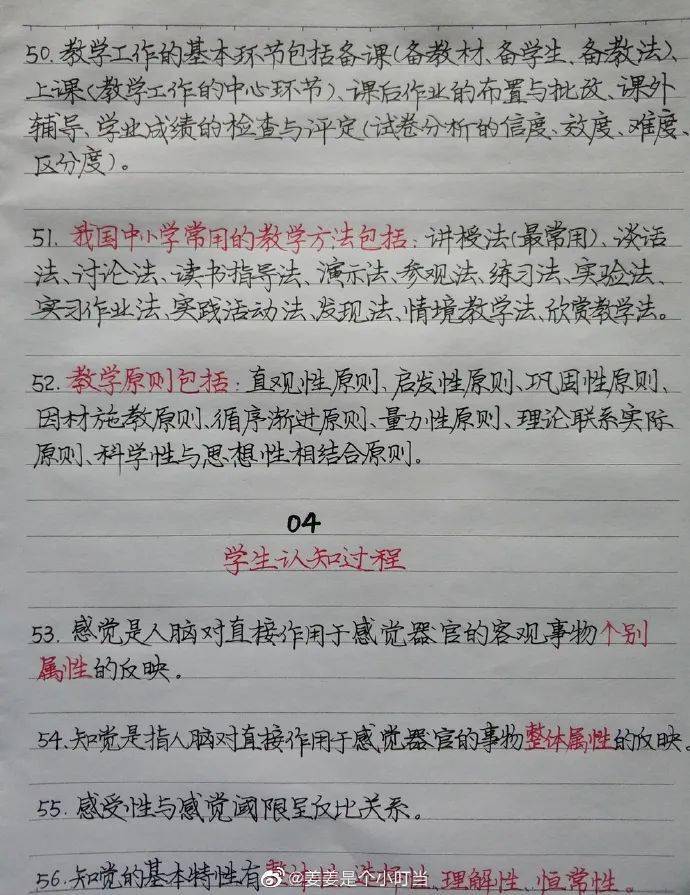 50. 教学工作的基本环节包括备课(备教材、备学生、备教法)、
上课(教学工作的中心环节)、课后作业的布置与批改、课外
辅导、学业成绩的检查与评定(试卷分析的信度、效度、难度、
区分度)。
51. 我国中小学常用的教学方法包括:讲授法(最常用)、谈话
法、讨论法、读书指导法、演示法、参观法、练习法、实验法、
实习作业法、实践活动法、发现法、情境教学法、欣赏教学法。
52. 教学原则包括:直观性原则、启发性原则、巩固性原则、
因材施教原则、循序渐进原则、量力性原则、理论联系实际
原则、科学性与思想性相结合原则。
04
学生认知过程
53. 感觉是人脑对直接作用于感觉器官的客观事物个别
属性的反映。
54. 知觉是指人脑对直接作用于感觉器官的事物整体属性的反映。
55. 感受性与感觉阈限呈反比关系。
56. 知觉的基本特性有整 理解性、恒常性。
@姜姜是个小叮当